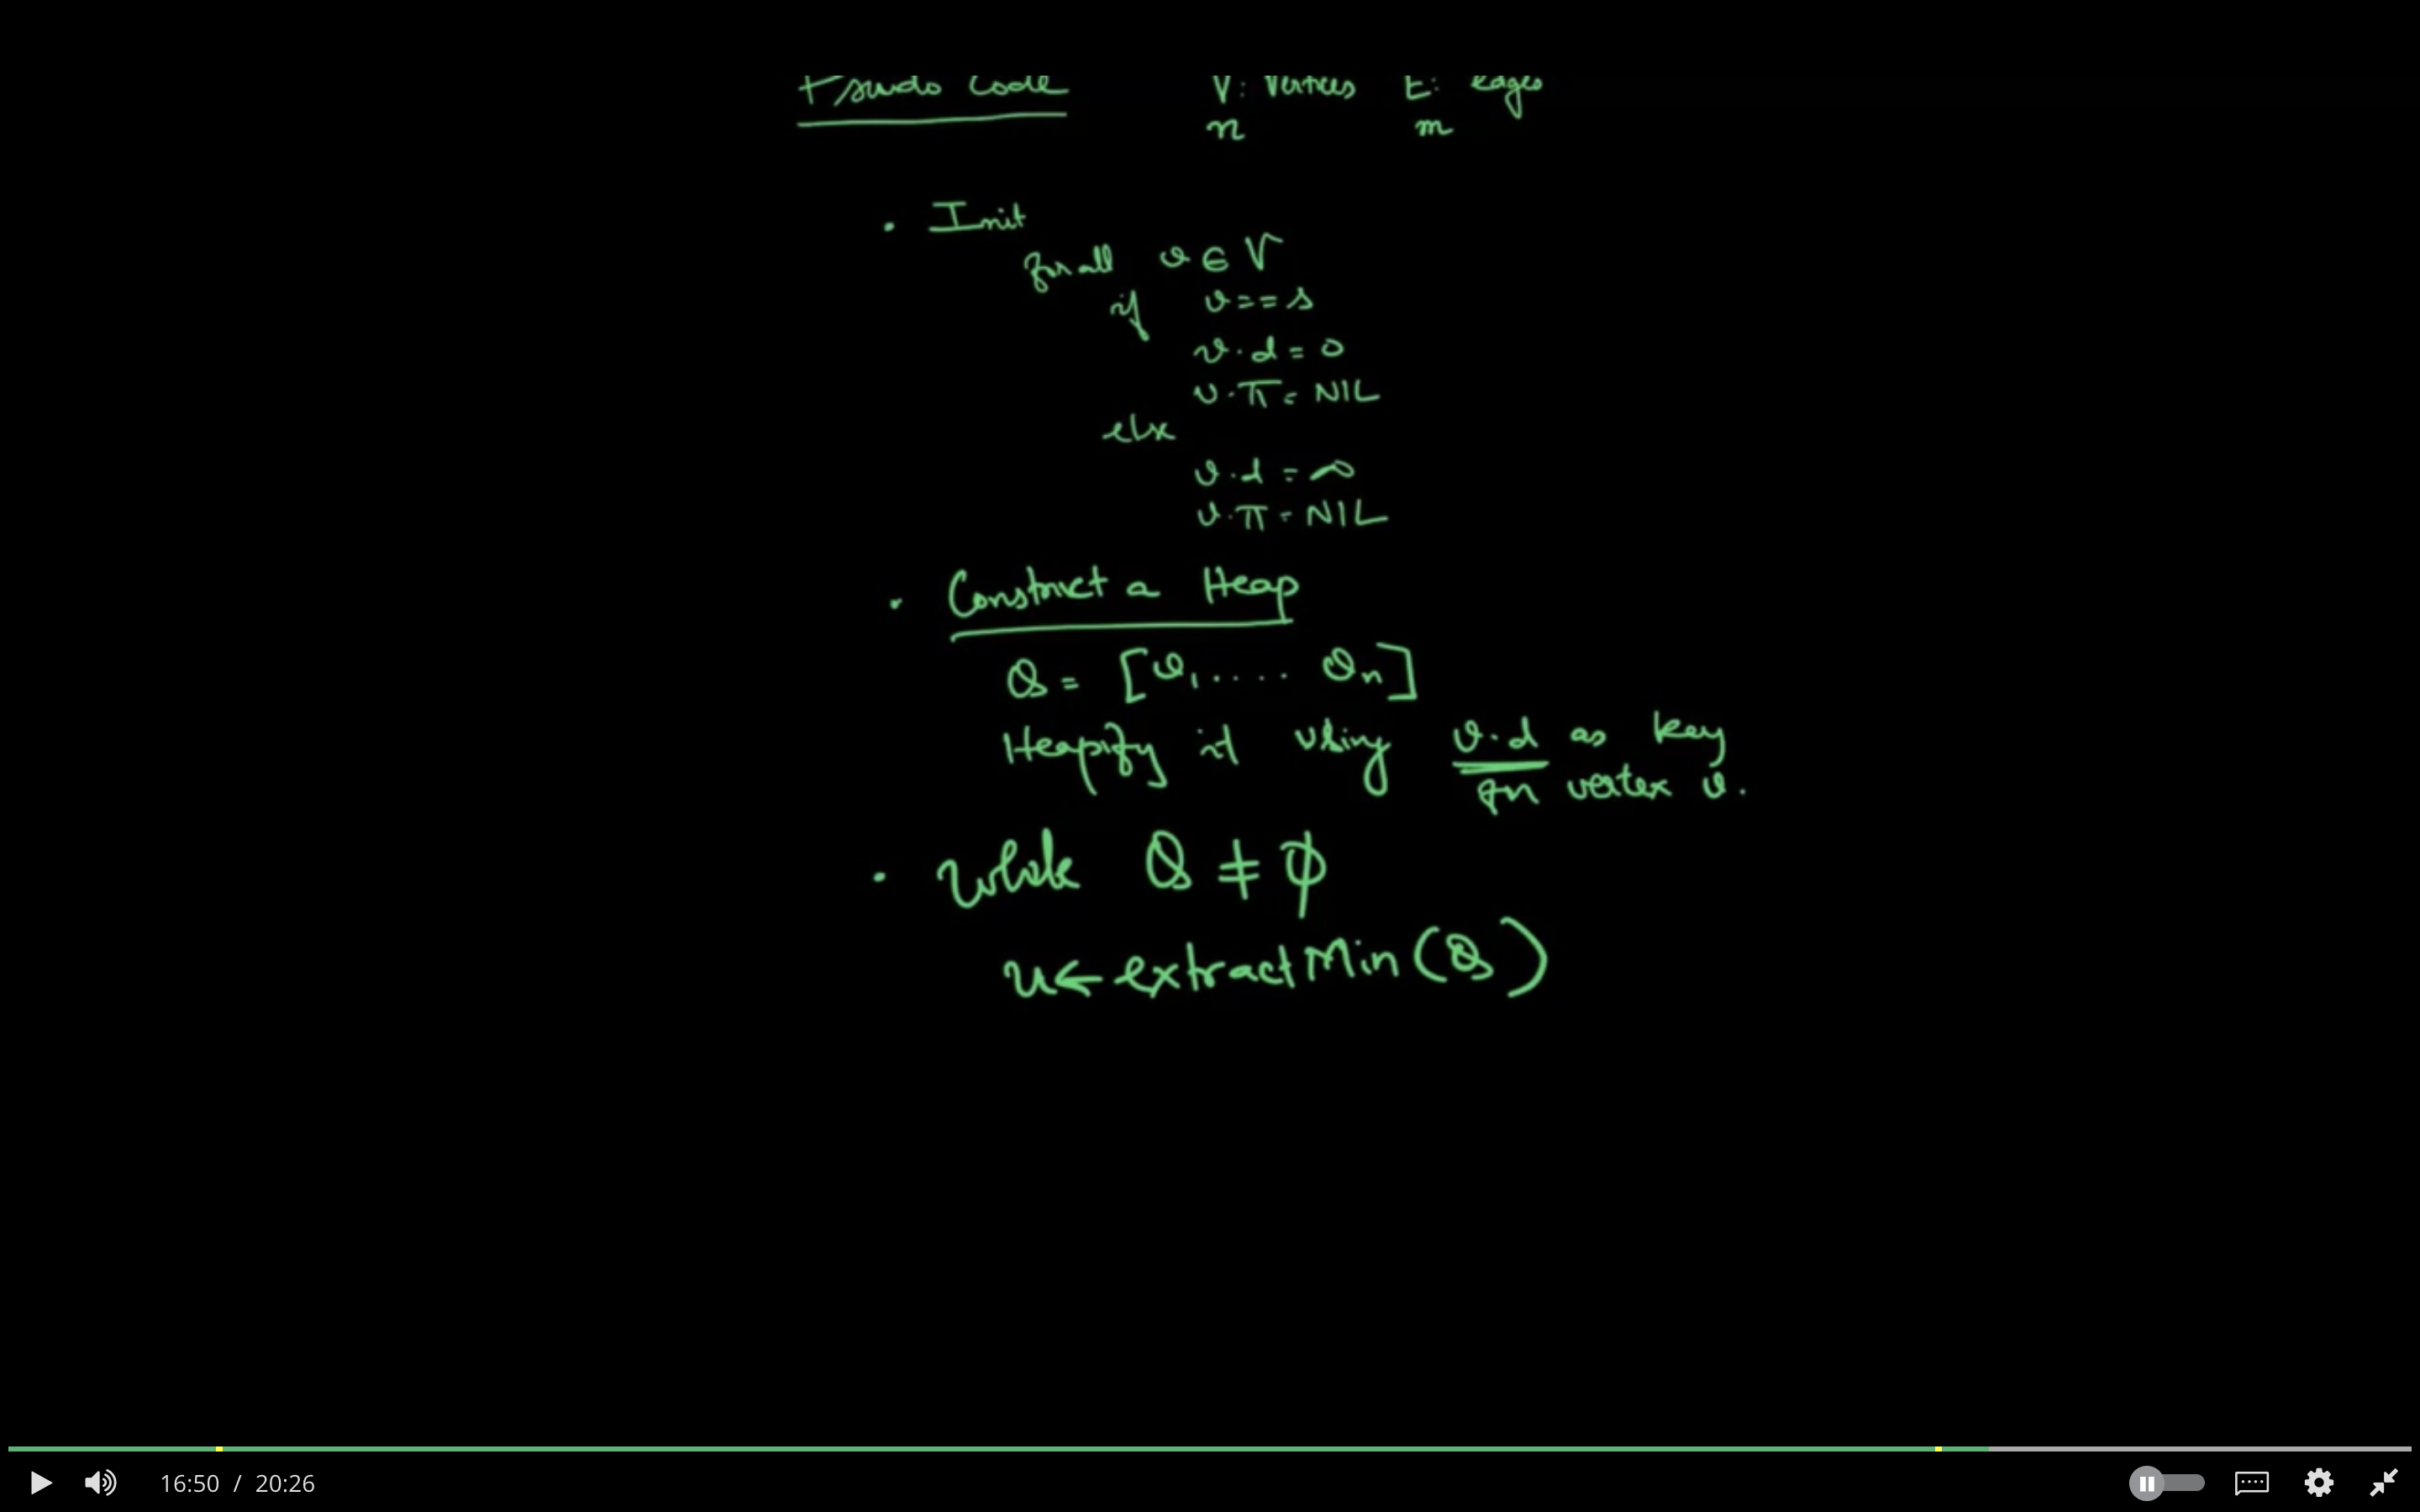 Psudo Code V: Vertices E: edges
n m
• Init
for all v ∈ V
if v == s
v.d = 0
v.π = NIL
else
v.d = ∞
v.π = NIL
• Construct a Heap
Q = [v₁ . . . . vₙ]
Heapify it using v.d as key
for vertex v.
• while Q ≠ φ
u ← extractMin (Q)
16:50 / 20:26